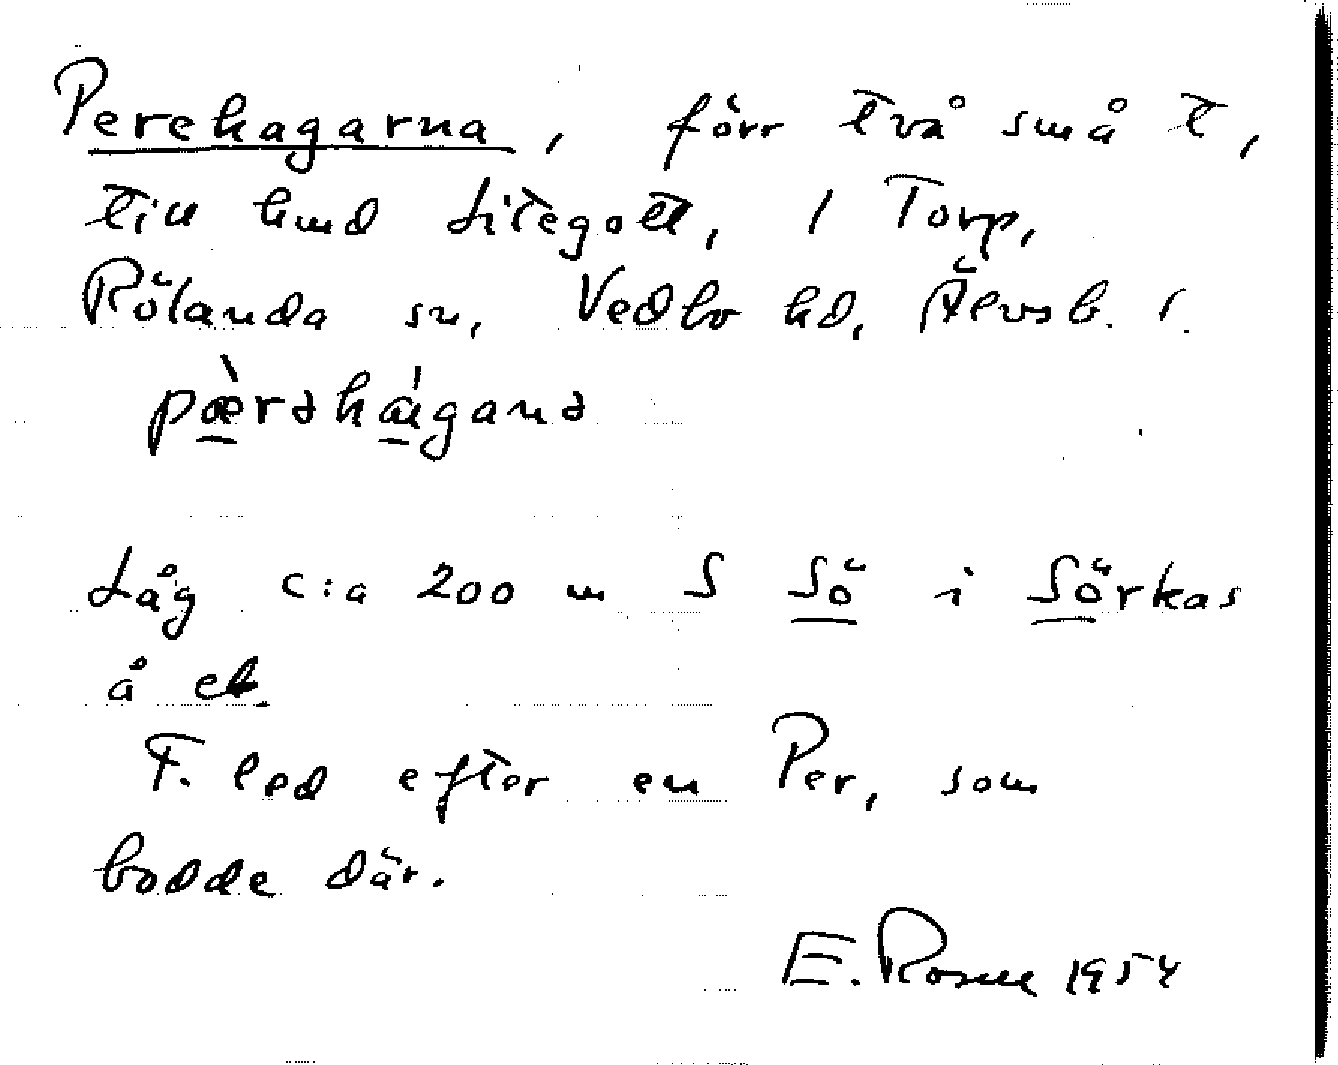 Perehagarna, förr två små t,
till hmd Litegott, i Torp,
Rölanda sn, Vedbo hd, Älvsb. l.
pæ̀rəhágaṇə
Låg c:a 200 m S Sö i Sörkas
å ek.
F. led efter en Per, som
bodde där.
E. Rosell 1954